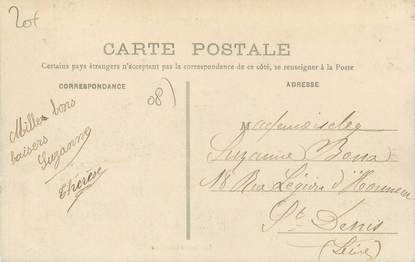 20f
CARTE POSTALE
Certains pays étrangers n'acceptent pas la correspondance de ce côté, se renseigner à la Poste
CORRESPONDANCE
ADRESSE
08)
Milles bons
baisers
Suzanne
Thérèse
Mademoiselle
Suzanne
18 Rue Légion d'Honneur
St Denis
(Seine)